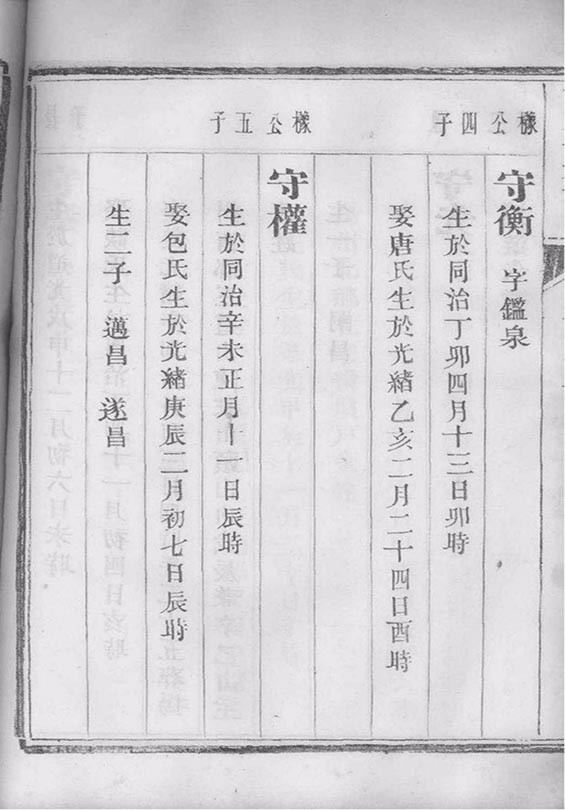 樣公四子
守衡 字鑑泉
生於同治丁卯四月十三日卯時
娶唐氏生於光緒乙亥二月二十四日酉時
樣公五子
守權
生於同治辛未正月十 日辰時
娶包氏生於光緒庚辰二月初七日辰時
生二子 邁昌 遂昌